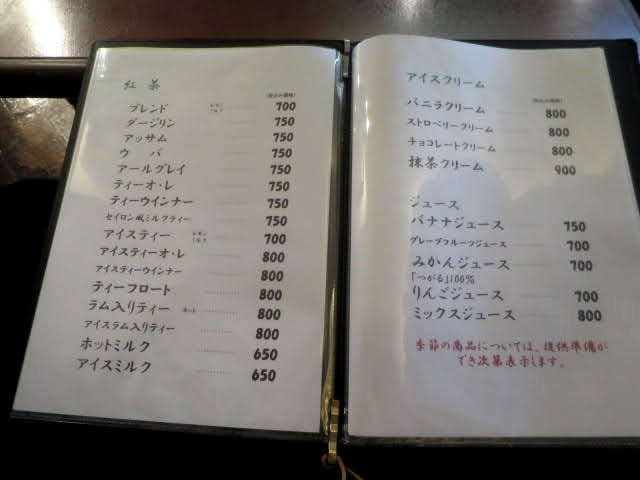 紅茶
(税込み価格)
ブレンド レモン ミルク 700
ダージリン 750
アッサム 750
ウバ 750
アールグレイ 750
ティーオ・レ 750
ティーウインナー 750
セイロン風ミルクティー 750
アイスティー レモン ミルク 700
アイスティーオ・レ 800
アイスティーウインナー 800
ティーフロート 800
ラム入りティー ホット 800
アイスラム入りティー 800
ホットミルク 650
アイスミルク 650
アイスクリーム
(税込み価格)
バニラクリーム 800
ストロベリークリーム 800
チョコレートクリーム 800
抹茶クリーム 900
ジュース
バナナジュース 750
グレープフルーツジュース 700
みかんジュース 700
「つがる」100%
りんごジュース 700
ミックスジュース 800
季節の商品については、提供準備が
でき次第表示します。